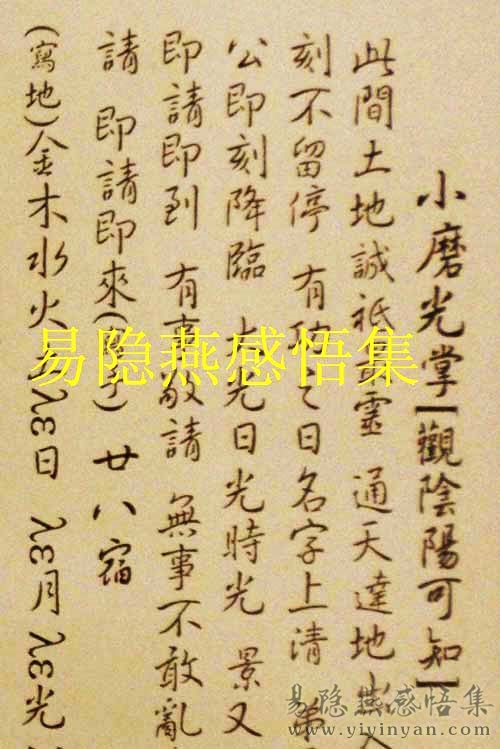 小磨光掌【觀陰陽可知】
此間土地 誠祇靈 通天達地
刻不留停 有之日 名字上清
公即刻降臨 光日光時光 景又
即請即到 有事敢請 無事不敢亂
請 即請即來( ) 廿八宿
(寫地)金木水火 日 月 光
易隐燕感悟集
易隐燕感悟集
www.yiyinyan.com